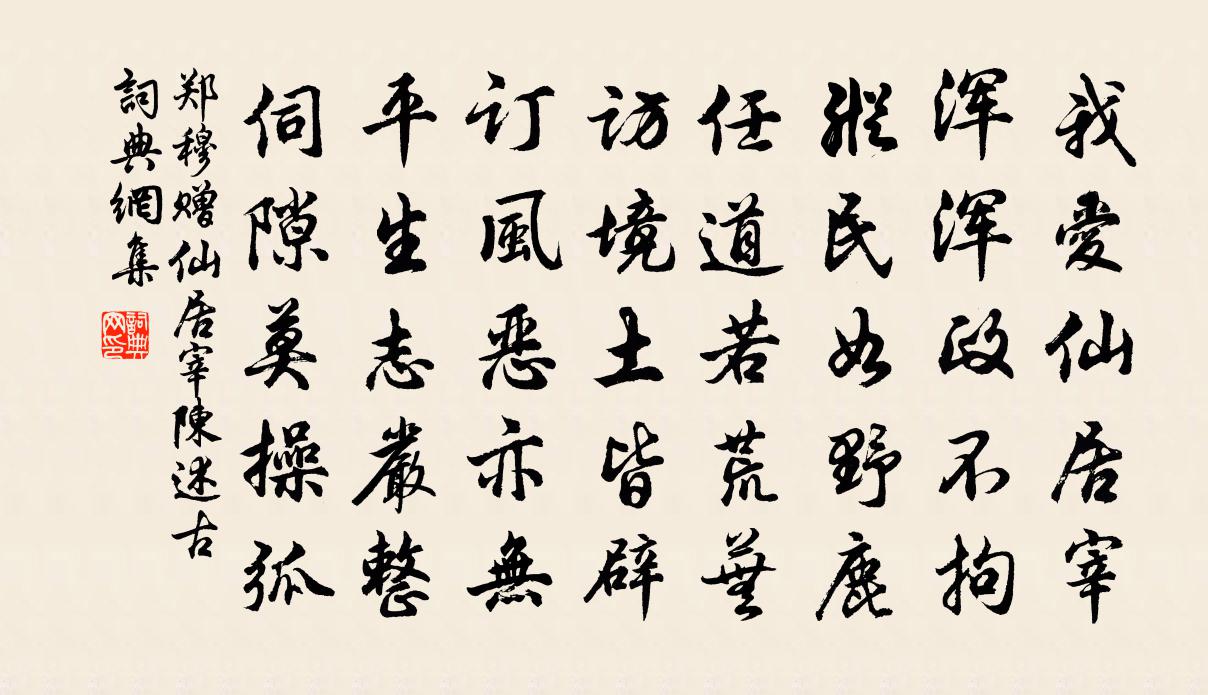 我愛仙居宰
浑浑政不拘
縱民如野鹿
任道若荒蕪
访境土皆辟
订風恶亦無
平生志嚴整
伺隙莫操弧
郑穆赠仙居宰陳述古
詞典網集
詞典网印